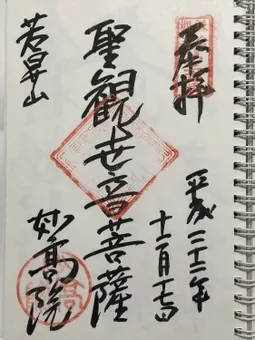 奉拝
平成二十二年
十二月十七日
聖観世音菩薩
若昇山
妙高院